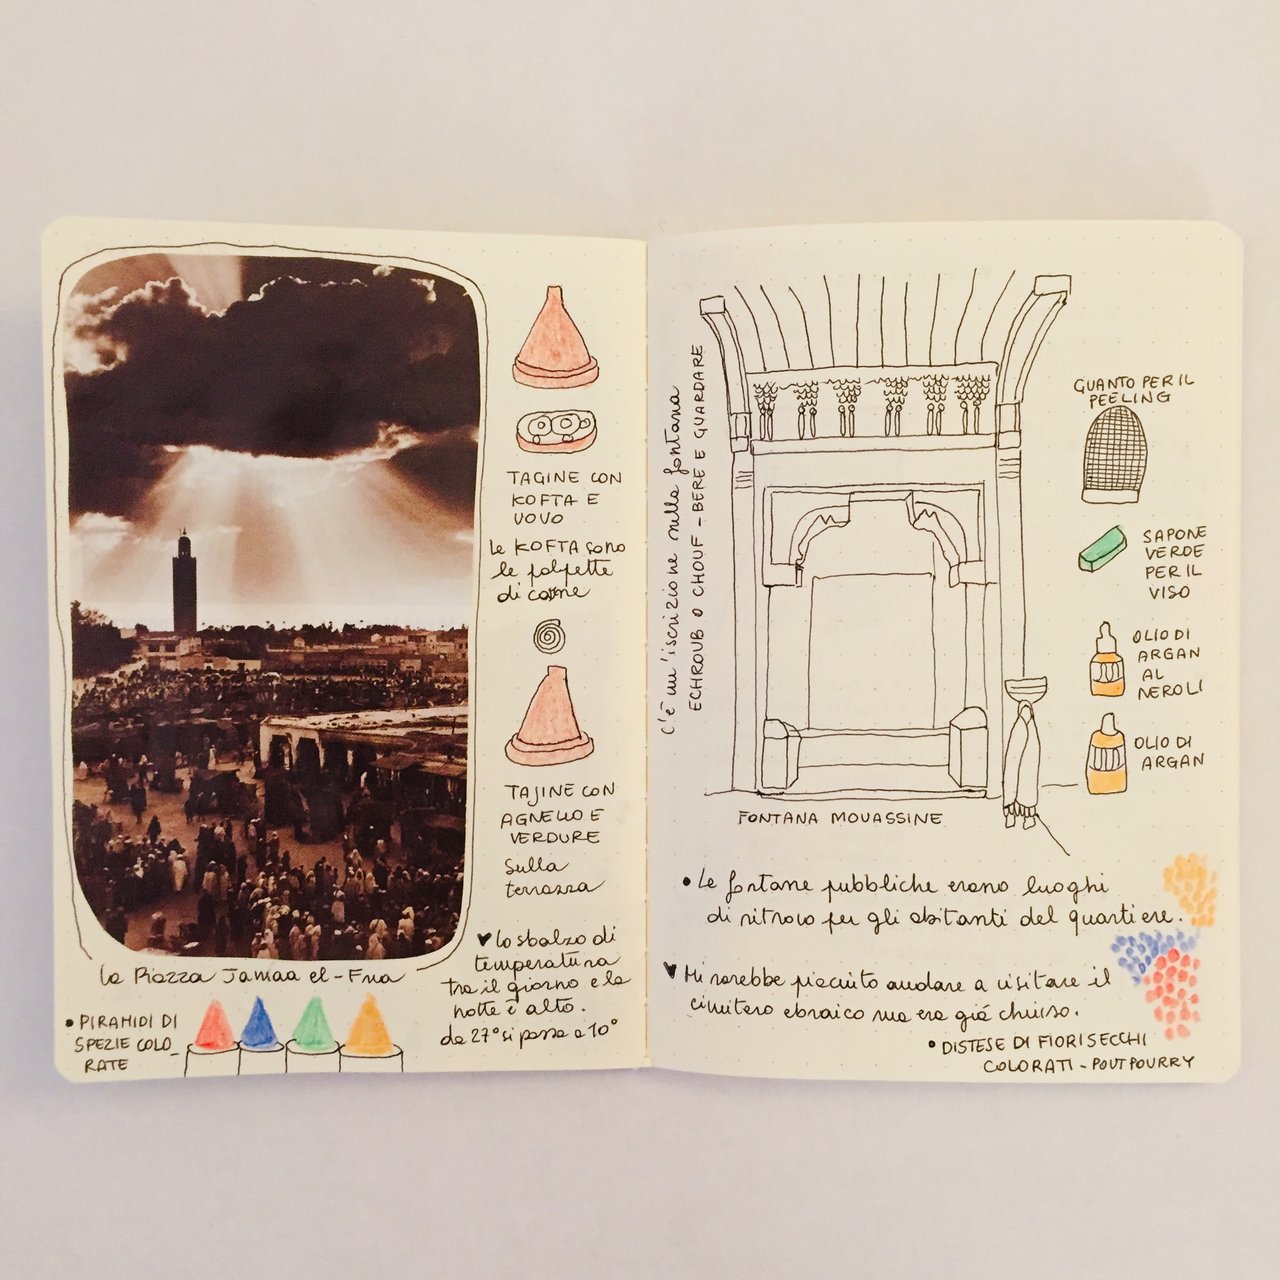 TAGINE CON
KOFTA E
UOVO
le KOFTA sono
le polpette
di carne
TAJINE CON
AGNELLO E
VERDURE
sulla
terrazza
la Piazza Jamaa el-Fna
• PIRAMIDI DI
SPEZIE COLO_
RATE
♥ lo sbalzo di
temperatura
tra il giorno e la
notte è alto.
da 27° si passa a 10°
c'è un'iscrizione sulla fontana
ECHROUB O CHOUF - BERE E GUARDARE
GUANTO PER IL
PEELING
SAPONE
VERDE
PER IL
VISO
OLIO DI
ARGAN
AL
NEROLI
OLIO DI
ARGAN
FONTANA MOUASSINE
• Le fontane pubbliche erano luoghi
di ritrovo per gli abitanti del quartiere.
♥ Mi sarebbe piaciuto andare a visitare il
cimitero ebraico ma era giá chiuso.
• DISTESE DI FIORI SECCHI
COLORATI - POUTPOURRY